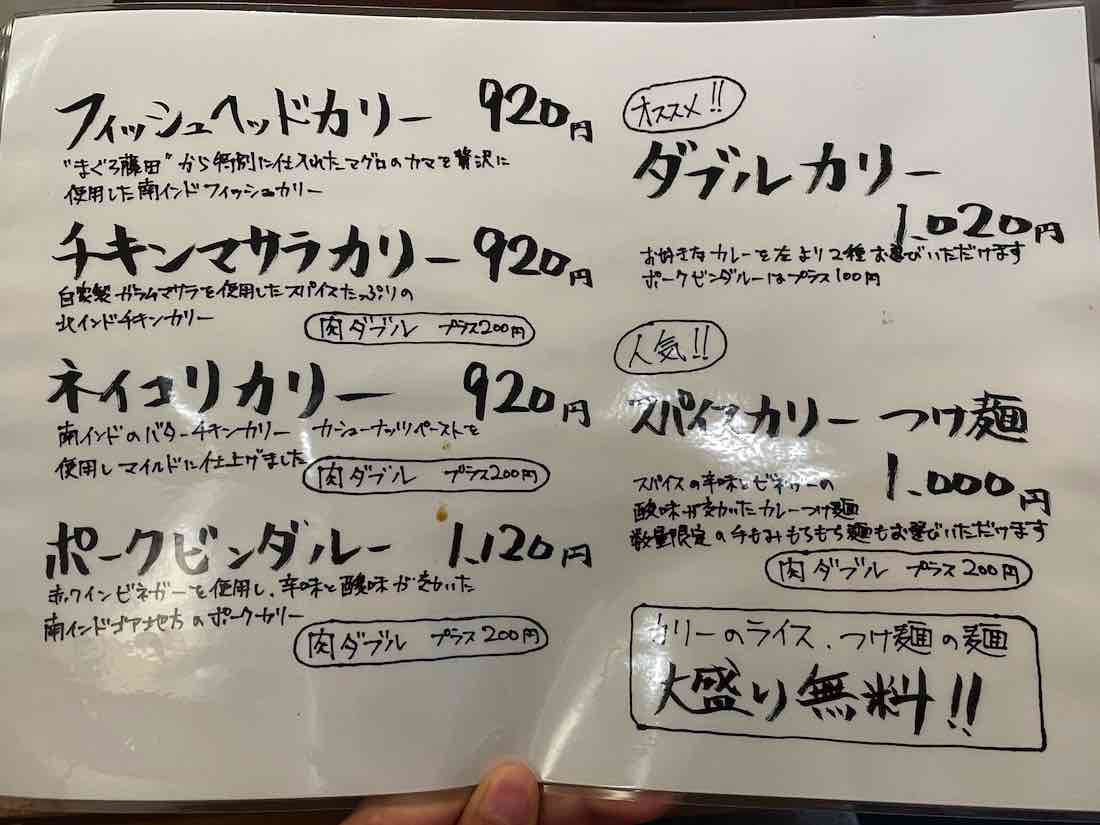 フィッシュヘッドカリー 920円
"まぐろ藤田"から特別に仕入れたマグロのカマを贅沢に
使用した南インドフィッシュカリー
チキンマサラカリー 920円
自家製ガラムマサラを使用したスパイスたっぷりの
北インドチキンカリー
肉ダブル プラス200円
ネイコリカリー 920円
南インドのバターチキンカリー カシューナッツペーストを
使用しマイルドに仕上げました
肉ダブル プラス200円
ポークビンダルー 1.120円
赤ワインビネガーを使用し、辛味と酸味が効いた
南インドゴア地方のポークカリー
肉ダブル プラス200円
オススメ!!
ダブルカリー
1.020円
お好きなカレーを左より2種お選びいただけます
ポークビンダルーはプラス100円
人気!!
スパイスカリー つけ麺
1.000円
スパイスの辛味とビネガーの
酸味が効いたカレーつけ麺
数量限定の手もみもちもち麺もお選びいただけます
肉ダブル プラス200円
カリーのライス、つけ麺の麺
大盛り無料!!